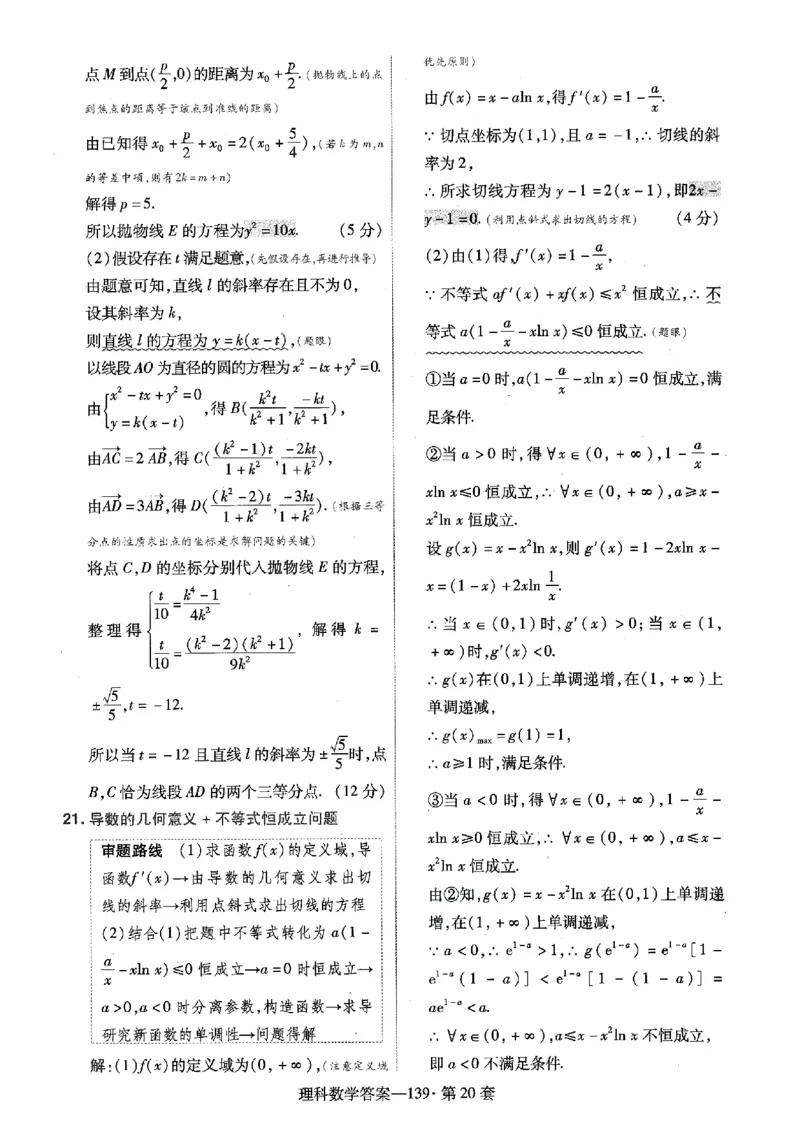 点M到点(p/2,0)的距离为x₀+p/2.(抛物线上的点
到焦点的距离等于该点到准线的距离)
由已知得x₀+p/2+x₀=2(x₀+5/4),(若k为m,n
的等差中项,则有2k=m+n)
解得p=5.
所以抛物线E的方程为y²=10x. (5分)
(2)假设存在t满足题意,(先假设存在,再进行推导)
由题意可知,直线l的斜率存在且不为0,
设其斜率为k,
则直线l的方程为y=k(x-t),(题眼)
以线段AO为直径的圆的方程为x²-tx+y²=0.
由{x²-tx+y²=0
y=k(x-t),得B(k²t/(k²+1),-kt/(k²+1)),
由AC→=2AB→,得C((k²-1)t/(1+k²),-2kt/(1+k²)),
由AD→=3AB→,得D((k²-2)t/(1+k²),-3kt/(1+k²)).(根据三等
分点的性质求出点的坐标是求解问题的关键)
将点C,D的坐标分别代入抛物线E的方程,
整理得{t/10=(k⁴-1)/4k²
t/10=(k²-2)(k²+1)/9k²,解得k=
±√5/5,t=-12.
所以当t=-12且直线l的斜率为±√5/5时,点
B,C恰为线段AD的两个三等分点. (12分)
21.导数的几何意义+不等式恒成立问题
审题路线 (1)求函数f(x)的定义域,导
函数f′(x)→由导数的几何意义求出切
线的斜率→利用点斜式求出切线的方程
(2)结合(1)把题中不等式转化为a(1-
a/x-xln x)≤0恒成立→a=0时恒成立→
a>0,a<0时分离参数,构造函数→求导
研究新函数的单调性→问题得解
解:(1)f(x)的定义域为(0,+∞),(注意定义域
优先原则)
由f(x)=x-aln x,得f′(x)=1-a/x.
∵切点坐标为(1,1),且a=-1,∴切线的斜
率为2,
∴所求切线方程为y-1=2(x-1),即2x-
y-1=0.(利用点斜式求出切线的方程) (4分)
(2)由(1)得,f′(x)=1-a/x,
∵不等式af′(x)+xf(x)≤x²恒成立,∴不
等式a(1-a/x-xln x)≤0恒成立.(题眼)
①当a=0时,a(1-a/x-xln x)=0恒成立,满
足条件.
②当a>0时,得∀x∈(0,+∞),1-a/x-
xln x≤0恒成立,∴∀x∈(0,+∞),a≥x-
x²ln x恒成立.
设g(x)=x-x²ln x,则g′(x)=1-2xln x-
x=(1-x)+2xln 1/x.
∴当x∈(0,1)时,g′(x)>0;当x∈(1,
+∞)时,g′(x)<0.
∴g(x)在(0,1)上单调递增,在(1,+∞)上
单调递减,
∴g(x)max=g(1)=1,
∴a≥1时,满足条件.
③当a<0时,得∀x∈(0,+∞),1-a/x-
xln x≥0恒成立,∴∀x∈(0,+∞),a≤x-
x²ln x恒成立.
由②知,g(x)=x-x²ln x在(0,1)上单调递
增,在(1,+∞)上单调递减,
∵a<0,∴e¹⁻ᵃ>1,∴g(e¹⁻ᵃ)=e¹⁻ᵃ[1-
e¹⁻ᵃ(1-a)]<e¹⁻ᵃ[1-(1-a)]=
ae¹⁻ᵃ<a.
∴∀x∈(0,+∞),a≤x-x²ln x不恒成立,
即a<0不满足条件.
理科数学答案—139·第20套